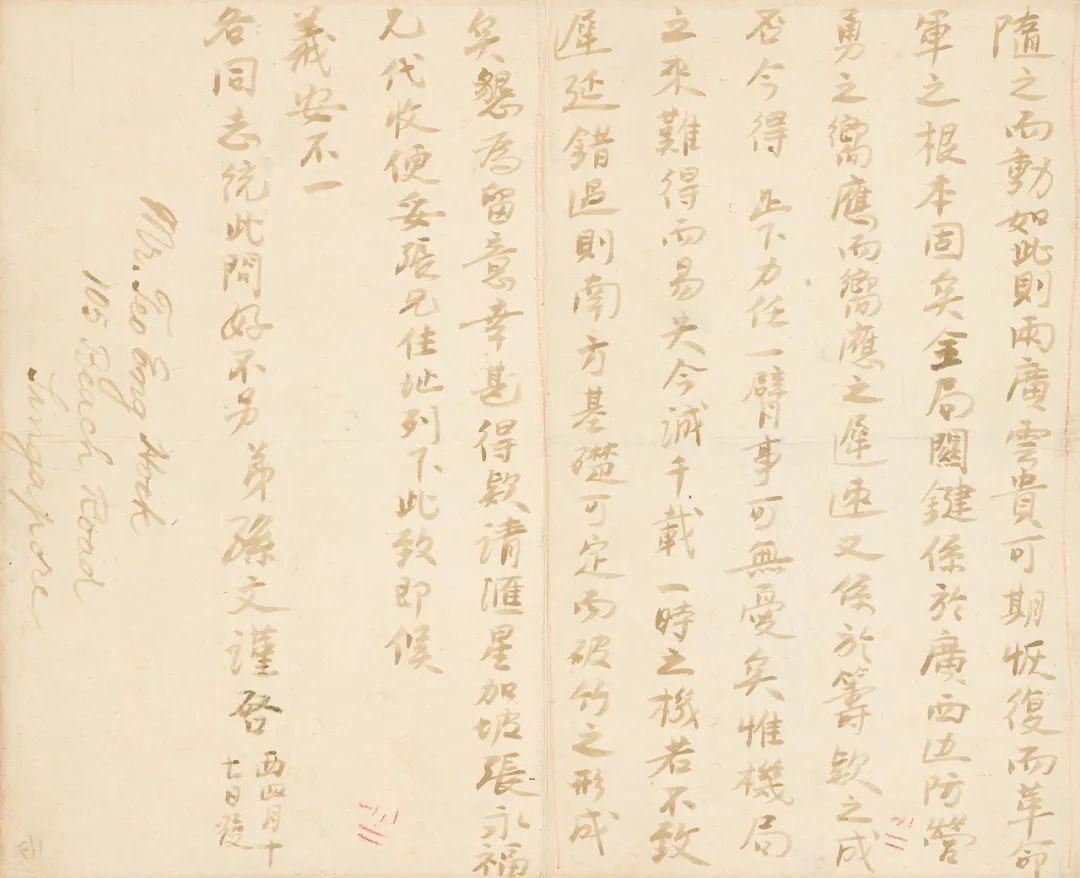 隨之而動如此則兩廣雲貴可期恢復而革命
軍之根本固矣全局關鍵係於廣西边防營
勇之嚮應而嚮應之遲速又係於籌欵之成
否今得 足下力任一臂事可無憂矣惟機局
之來難得而易失今誠千載一時之機若不致
遲延錯過則南方基礎可定而破竹之形成
矣懇為留意幸甚得欵請滙星加坡張永福
兄代收便妥張兄住址列下此致即候
義安不一
各同志統此問好不另 弟孫文謹啓 西四月十
七日發
Mr. Teo Eng Hock
105 Beach Road
Singapore